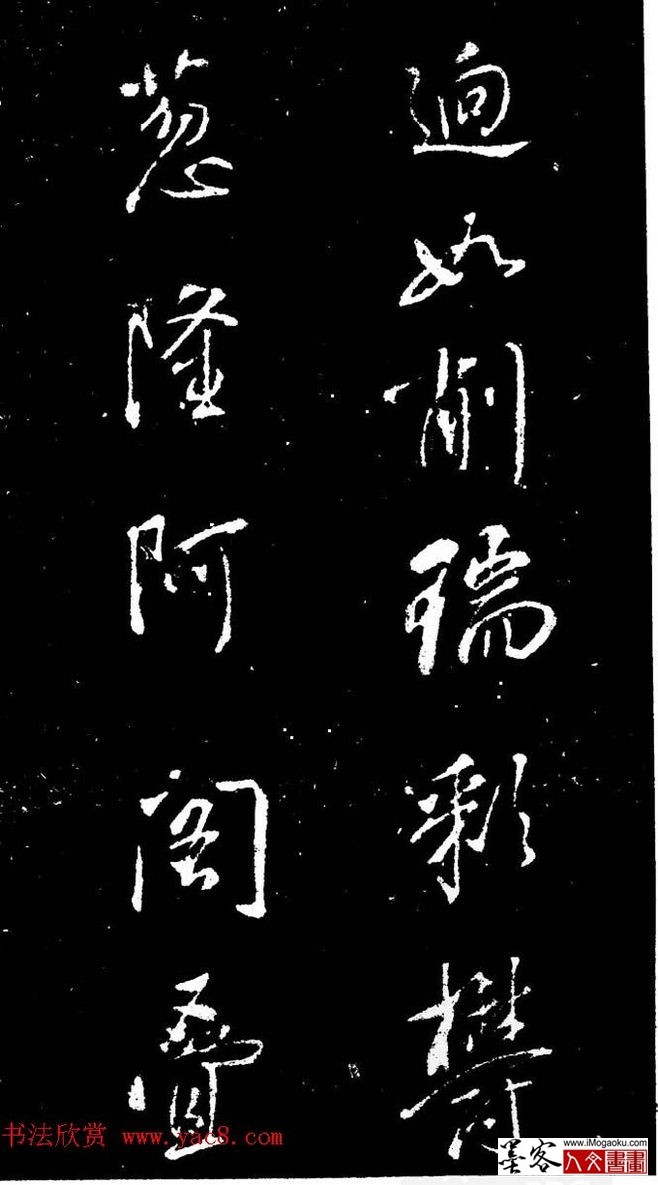 逈如削瑞彩欝
葱隆阿阁叠
书法欣赏 www.yac8.com
墨客 www.iMogaoku.com
人文書畫